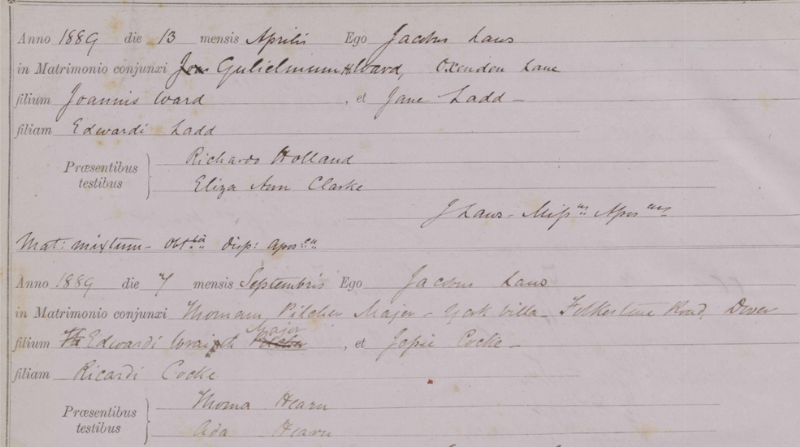 Anno 1889 die 13 mensis Aprilis Ego Jacobus Laws
in Matrimonio conjunxi Gulielmum H Ward, Oxenden Lane
filium Joannis Ward , et Jane Ladd -
filiam Edwardi Ladd
Præsentibus testibus
Richards Holland
Eliza Ann Clarke
J Laws - Miss us Apos us
Mat: mixtum - Obt Disp: apos
Anno 1889 die 7 mensis Septembris Ego Jacobus Laws
in Matrimonio conjunxi Thomam Pilcher Major - York Villa - Folkestone Road, Dover
Major
filium Th Edwardi Wraight Pilcher , et Jessie Cocke -
filiam Ricardi Cocke
Præsentibus testibus
Thoma Hearn
Ada Hearn